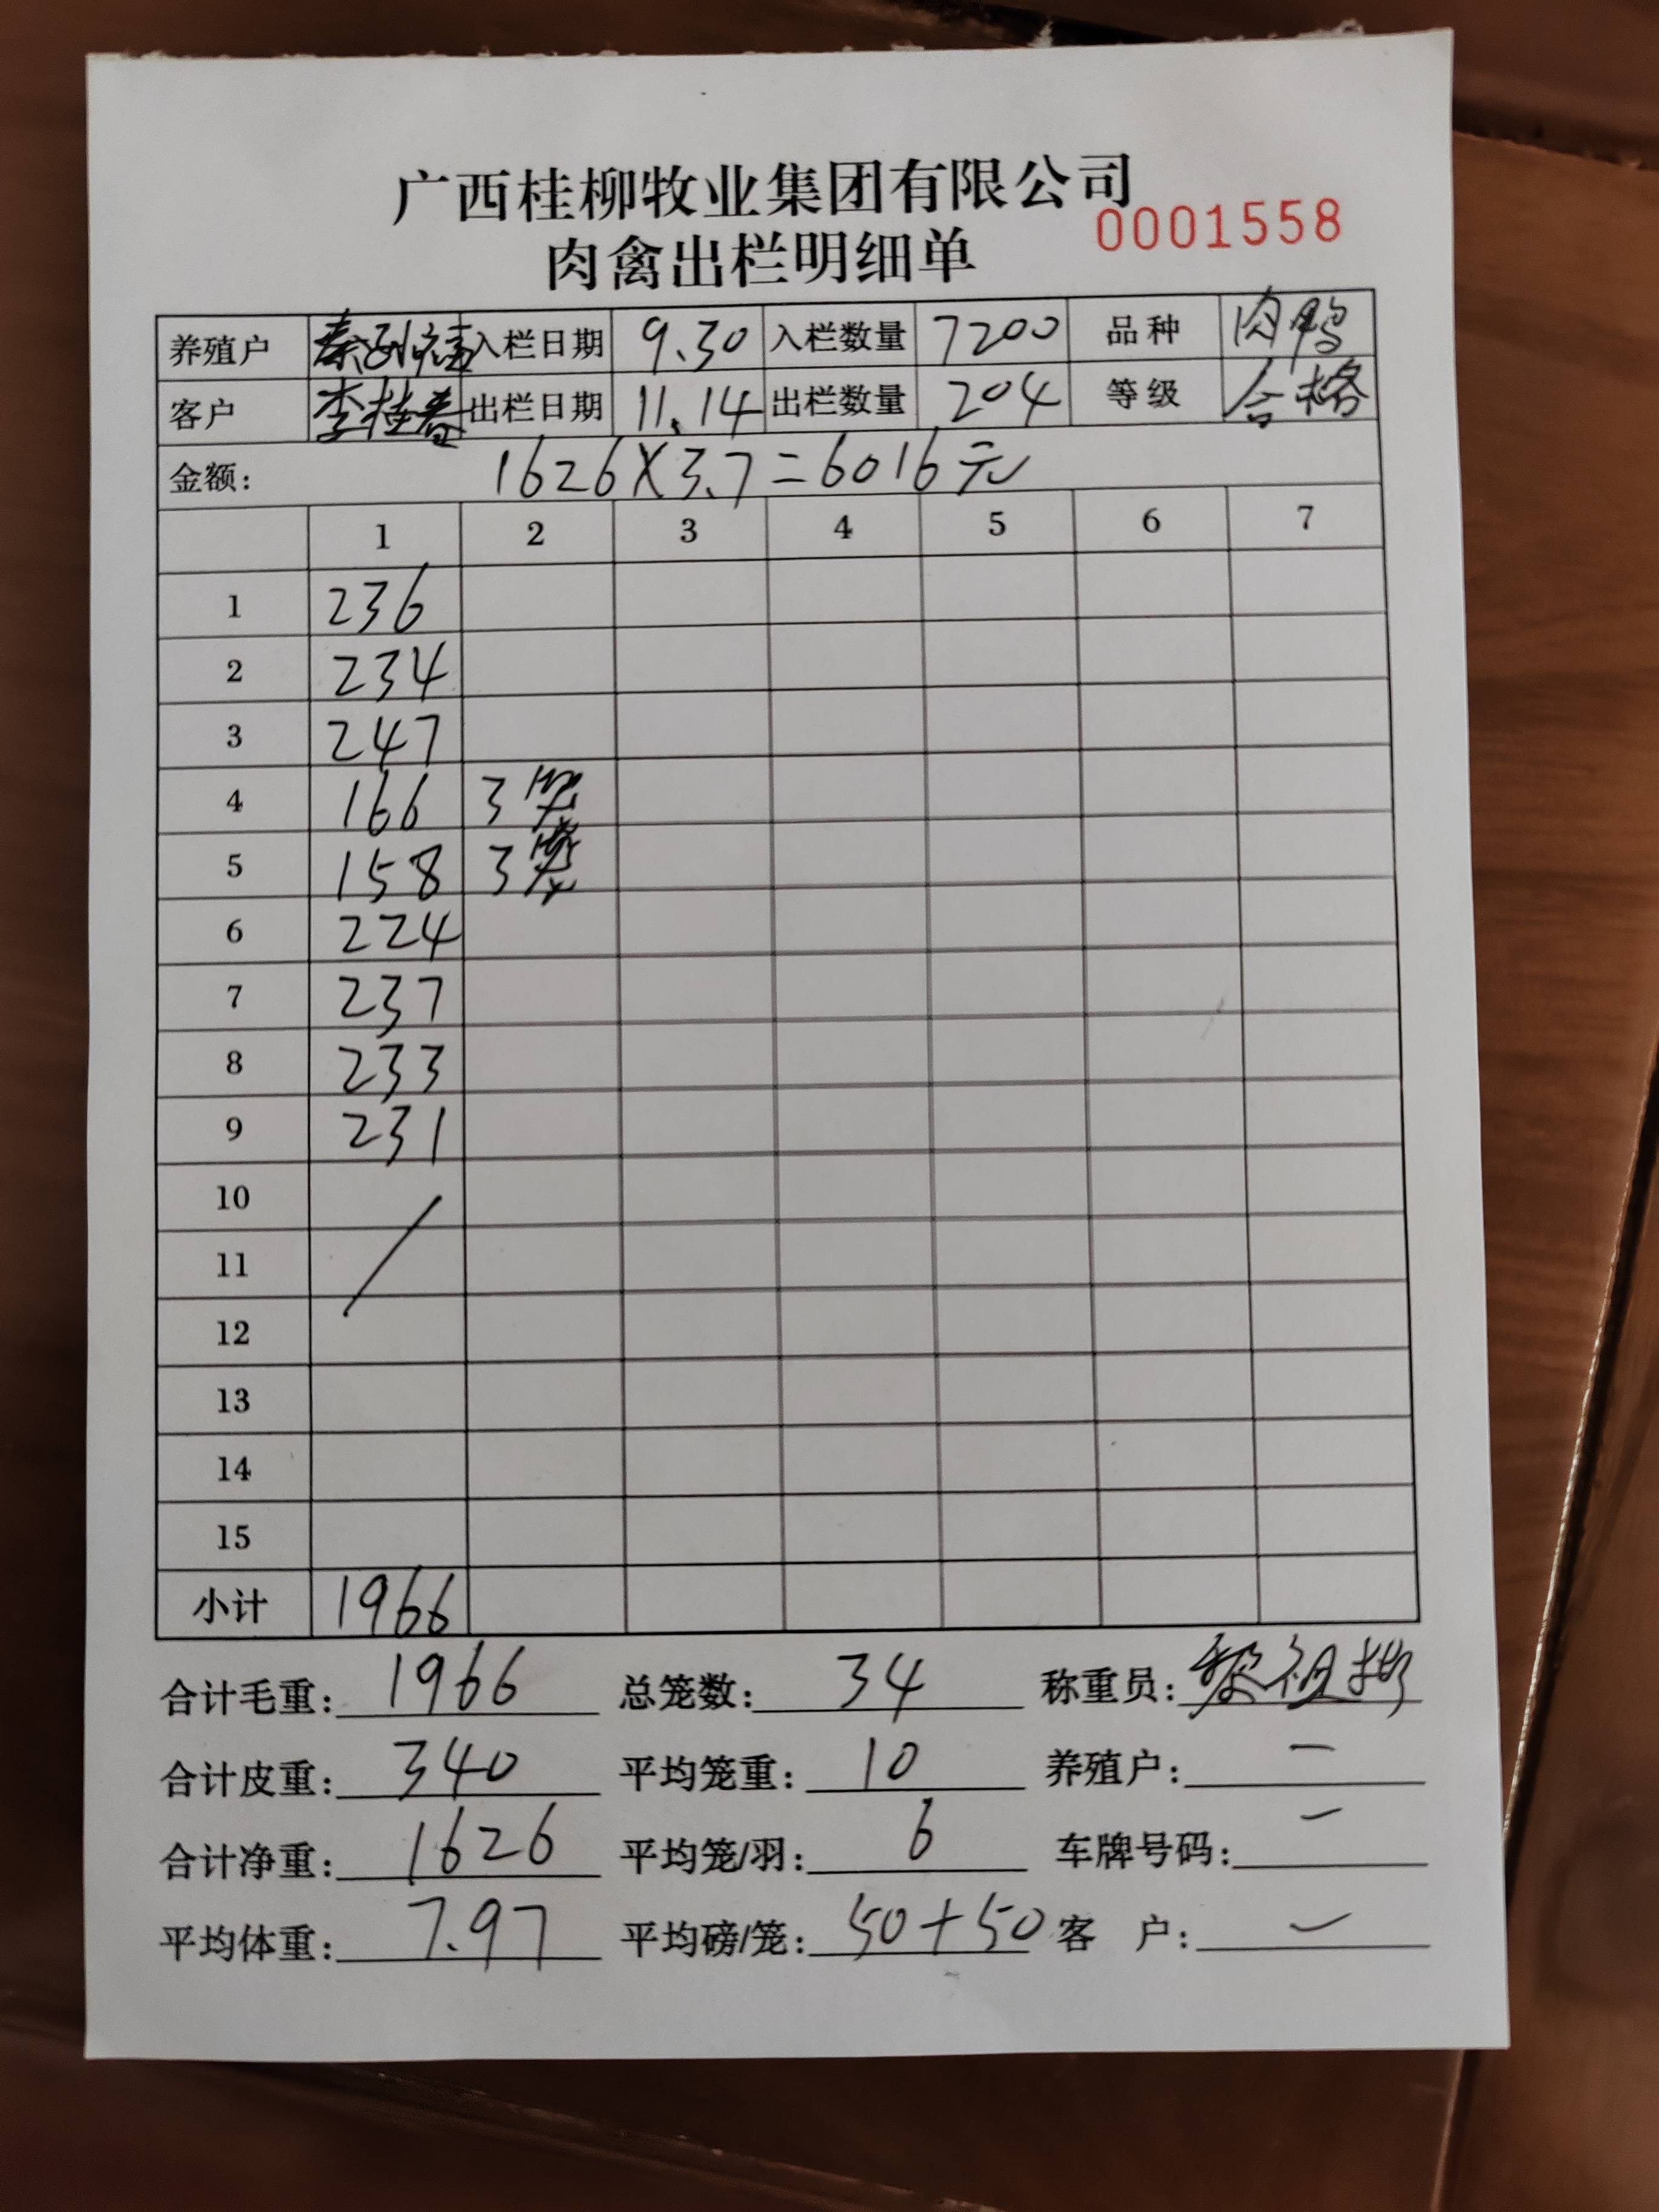 广西桂柳牧业集团有限公司
肉禽出栏明细单 0001558
养殖户 入栏日期 9.30 入栏数量 7200 品种 肉鸭
客户 李桂春 出栏日期 11.14 出栏数量 204 等级 合格
金额: 1626×3.7=6016元
1 2 3 4 5 6 7
1 236
2 234
3 247
4 166 3笼
5 158 3笼
6 224
7 237
8 233
9 231
10
11
12
13
14
15
小计 1966
合计毛重: 1966 总笼数: 34 称重员:
合计皮重: 340 平均笼重: 10 养殖户: 一
合计净重: 1626 平均笼/羽: 6 车牌号码: 一
平均体重: 7.97 平均磅/笼: 50+50 客 户: 一